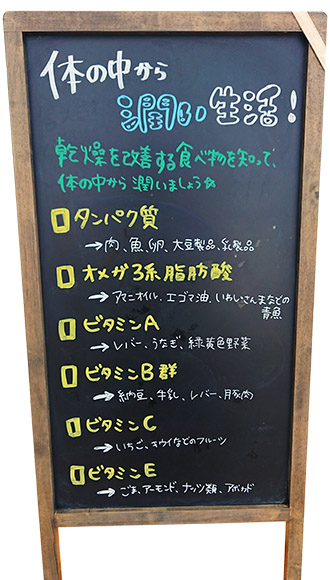 体の中から
潤い生活!
乾燥を改善する食べ物を知って、
体の中から潤いましょう☆
タンパク質
→肉、魚、卵、大豆製品、乳製品
オメガ3系脂肪酸
→アマニオイル、エゴマ油、いわし、さんまなどの
青魚
ビタミンA
→レバー、うなぎ、緑黄色野菜
ビタミンB群
→納豆、牛乳、レバー、豚肉
ビタミンC
→いちご、キウイなどのフルーツ
ビタミンE
→ごま、アーモンド、ナッツ類、アボカド